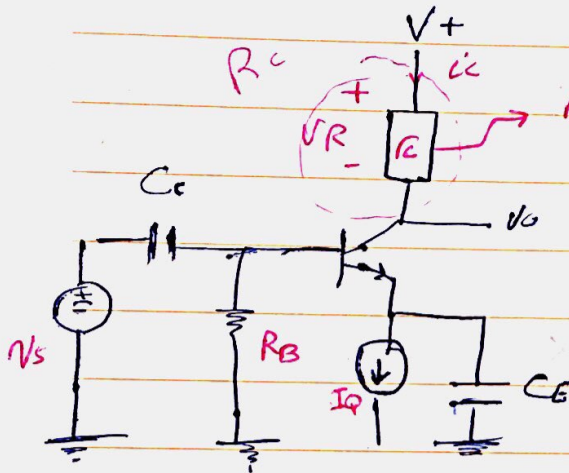 V+
Rc
ic
+
VR
-
rc
Cc
vo
+
-
Vs
RB
IQ
CE